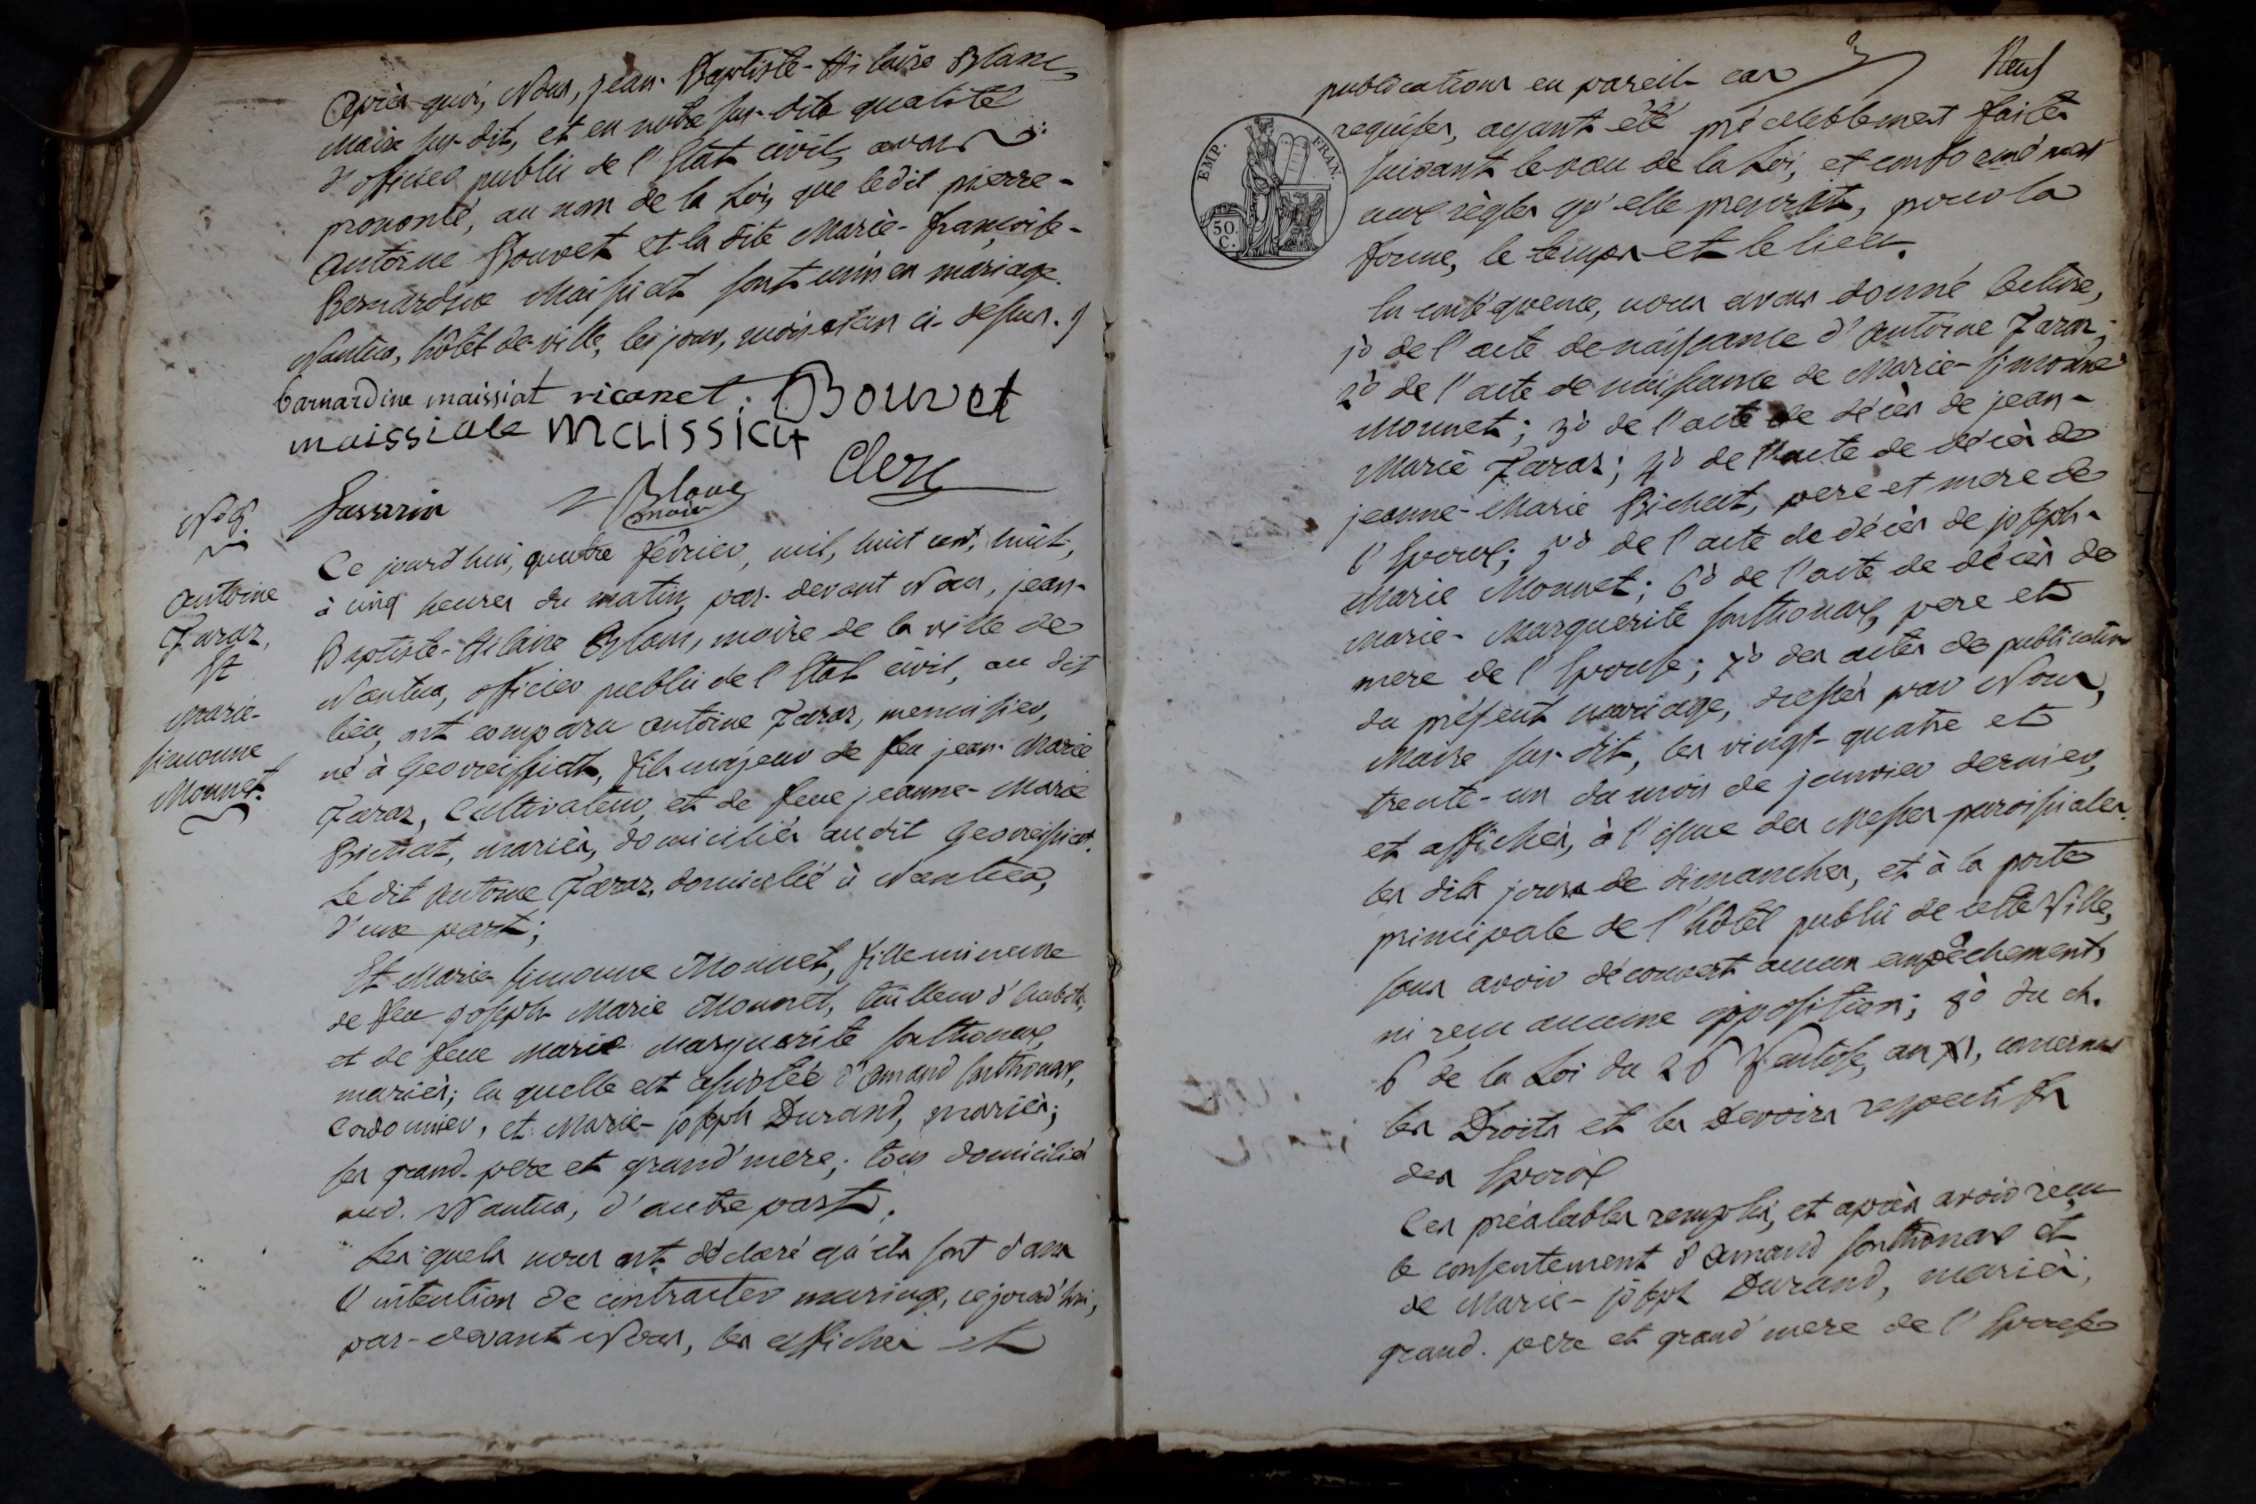 Après-quoi, Nous, jean-Baptiste-Hilaire Blanc,
Maire sus-dit, et en notre sus-dite qualité
d'officier public de l'Etat civil, avons
prononcé, au nom de la Loi, que ledit pierre-
antoine Bouvet et la dite Marie-françoise-
Bernardine Maissiat sont unis en mariage.
Nantua, hôtel de ville, les jour, mois et an ci-dessus.
barnardine maissiat ricanet. Bouvet
maissiate Maissiat
Clerc
Blanc
maire
N.° 8.
antoine
Taraz,
Et
marie-
simonne
Monnet.
Ce jourd'hui, quatre février, mil, huit cent, huit,
à cinq heures du matin, par-devant Nous, jean-
Baptiste-Hilaire Blanc, maire de la ville de
Nantua, officier public de l'Etat civil, au dit
lieu, ont comparu antoine Taraz, menuisier,
né à Géovreissiat, fils majeur de feu jean-Marie
Taraz, Cultivateur, et de feue jeanne-Marie
Bichat, mariés, domiciliés audit Géovreissiat.
Le dit antoine Taraz, domicilié à Nantua,
d'une part;
Et Marie simonne Monnet, fille mineure
de feu joseph Marie Monnet, tailleur d'habits,
et de feue Marie Marguerite Sonthonax,
mariés; la quelle est assistée d'amand Sonthonax,
Cordonnier, et Marie-joseph Durand, mariés;
ses grand-père et grand'mère; tous domiciliés
aud. Nantua, d'autre part.
Les quels nous ont déclaré qu'ils sont dans
l'intention de contracter mariage, cejourd'hui,
par-devant Nous, les affiches et
Neuf
EMP. FRAN.
50.
C.
publications en pareil cas
requises, ayant été préalablement faites
suivant le vœu de la Loi, et conformément
aux règles qu'elle prescrit, pour la
forme, le temps et le lieu.
En conséquence, nous avons donné lecture,
1° de l'acte de naissance d'antoine Taraz;
2° de l'acte de naissance de Marie-simonne
Monnet; 3° de l'acte de décès de jean-
Marie Taraz; 4° de l'acte de décès de
jeanne-Marie Bichat, père et mère de
l'Epoux; 5° de l'acte de décès de joseph-
Marie Monnet; 6° de l'acte de décès de
Marie-Marguerite Sonthonax, père et
mère de l'Epouse; 7° des actes de publication
du présent mariage, dressés par Nous,
Maire sus-dit, les vingt-quatre et
trente-un du mois de janvier dernier,
et affichés, à l'issue des Messes paroissiales
les dits jours de dimanches, et à la porte
principale de l'hôtel public de cette Ville,
sans avoir découvert aucun empêchement,
ni reçu aucune opposition; 8° du ch.
6 de la Loi du 26 Ventôse, an XI, concernant
les Droits et les Devoirs respectifs
des Epoux
Ces préalables remplis, et après avoir reçu
le consentement d'amand Sonthonax et
de Marie-joseph Durand, mariés,
grand-père et grand'mère de l'Epouse